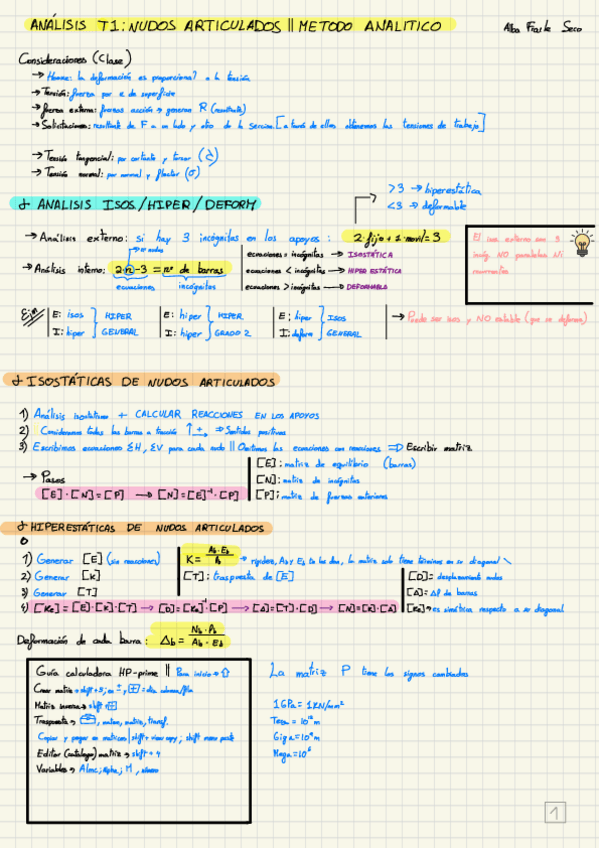 ANÁLISIS T1: NUDOS ARTICULADOS || METODO ANALITICO
Alba Fraile Seco
Consideraciones (Clase)
→ Hooke: la deformación es proporcional a la tensión
→ Tensión: fuerza por e de superficie
→ fuerza externa: fuerzas acción → generan R (resultante)
→ Solicitaciones: resultante de F a un lado y otro de la sección [a través de ellas obtenemos las tensiones de trabajo]
→ Tensión tangencial: por cortante y torsor
→ Tensión normal: por normal y flector (σ)
ANALISIS ISOS/HIPER/DEFORM
>3 → hiperestática
<3 → deformable
→ Análisis externo: si hay 3 incógnitas en los apoyos: 2·fijo + 1·movil = 3
El isos externo son 3 incóg. NO paralelas NI
→ Análisis interno: 2·n-3 = nº de barras
nº nudos
ecuaciones incógnitas
ecuaciones = incógnitas → ISOSTÁTICA
ecuaciones < incógnitas → HIPER ESTÁTICA
ecuaciones > incógnitas → DEFORMABLE
Ejm
E: isos
I: hiper
HIPER
GENERAL
E: hiper
I: hiper
HIPER
GRADO 2
E: hiper
I: deform
ISOS
GENERAL
→ Puede ser isos y NO estable (que se deforma)
ISOSTÁTICAS DE NUDOS ARTICULADOS
1) Análisis isostatismo + CALCULAR REACCIONES EN LOS APOYOS
2) Consideramos todas las barras a tracción ↑ + → Sentidos positivos
3) Escribimos ecuaciones ΣH, ΣV para cada nudo || Omitimos las ecuaciones con reacciones ⇒ Escribir matriz
→ Pasos
[E]·[N]=[P] → [N]=[E]⁻¹·[P]
[E]: matriz de equilibrio (barras)
[N]: matriz de incógnitas
[P]: matriz de fuerzas exteriores
HIPERESTÁTICAS DE NUDOS ARTICULADOS
1) Generar [E] (sin reacciones)
2) Generar [K]
3) Generar [T]
K = Ab·Eb / lb → rigidez, Ab y Eb te los dan, la matriz solo tiene términos en su diagonal \
[T]: traspuesta de [E]
[D] = desplazamiento nudos
[Δ] = Δl de barras
[Ke] → es simétrica respecto a su diagonal
4) [Ke] = [E]·[K]·[T] → [D] = [Ke]⁻¹·[P] → [Δ] = [T]·[D] → [N] = [K]·[Δ]
Deformación de cada barra: Δb = Nb·lb / Ab·Eb
Guía calculadora HP-prime || Para inicio → ⇧
Matriz inversa → shift +
Traspuesta → , maten, matriz, transf.
Copiar y pegar en matrices | shift + view copy; shift menu paste
Editar (catálogo) matriz → shift + 4
Variables → Almc; Alpha; M, número
La matriz P tiene los signos cambiados
1GPa = 1KN/mm²
Tera = 10¹²m
Giga = 10⁹m
Mega = 10⁶
1